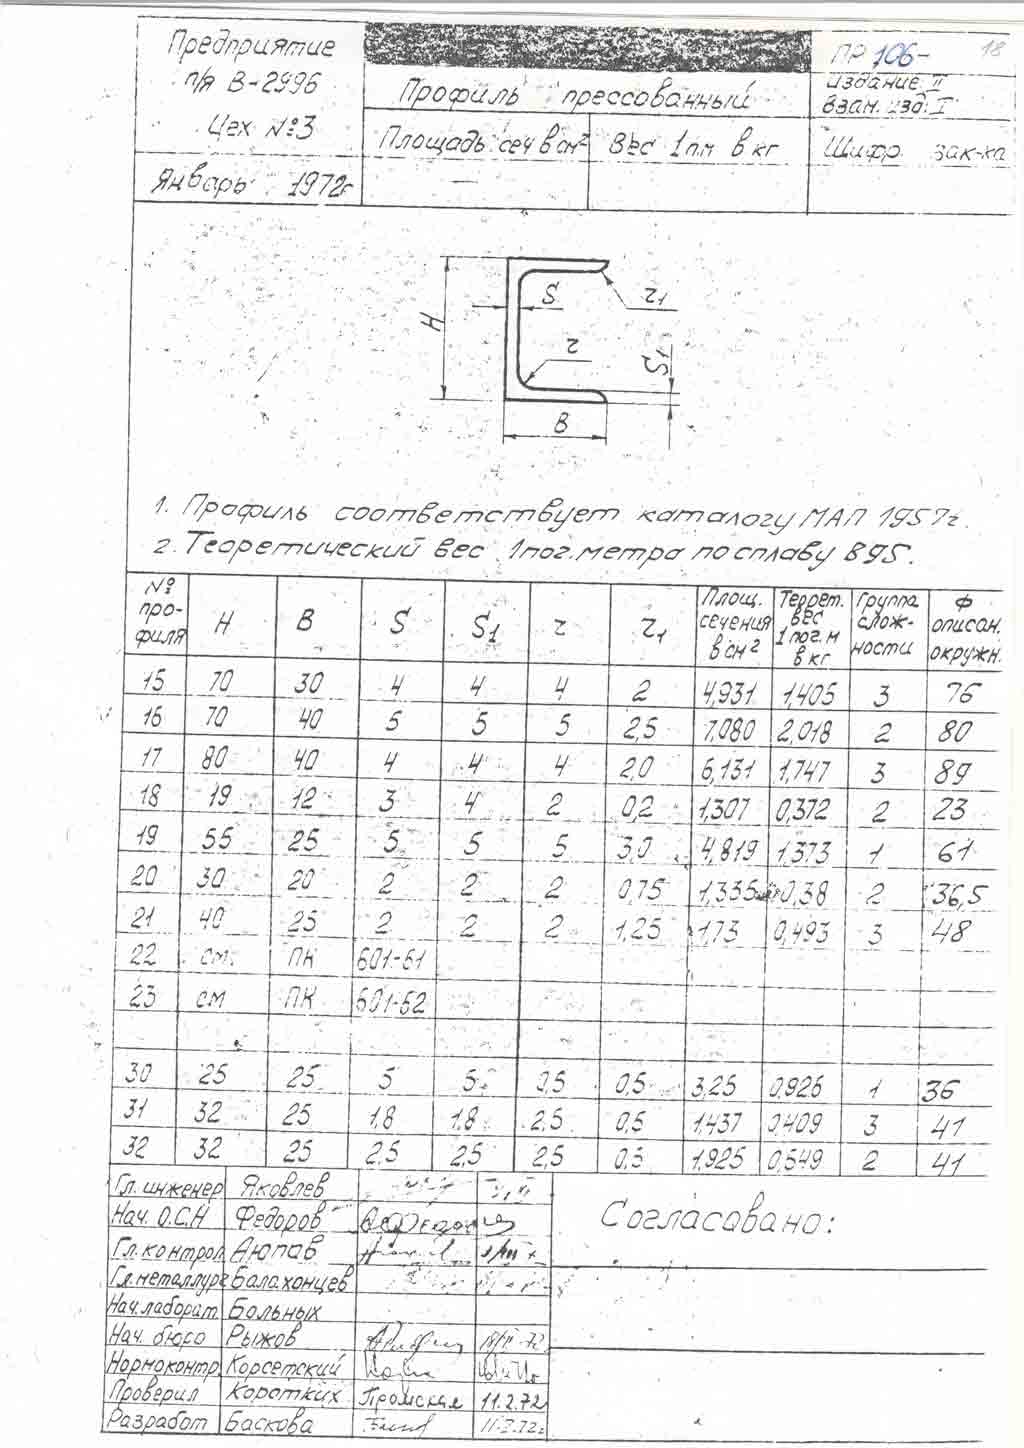 Предприятие
п/я В-2996
Цех №3
Январь 1972г
Профиль прессованный
Площадь сеч в см² Вес 1 п.м в кг
—
ПР 106- 18
издание II
взам. изд. I
Шифр зак-ка
S
H
r
r1
S1
B
1. Профиль соответствует каталогу МАП 1957г.
2. Теоретический вес 1 пог. метра по сплаву В95.
№ про-филя H B S S1 r r1 Площ. сечения в см² Теорет. вес 1 пог. м в кг Группа слож-ности Ф описан. окружн.
15 70 30 4 4 4 2 4,931 1,405 3 76
16 70 40 5 5 5 2,5 7,080 2,018 2 80
17 80 40 4 4 4 2,0 6,131 1,747 3 89
18 19 12 3 4 2 0,2 1,307 0,372 2 23
19 55 25 5 5 5 3,0 4,819 1,373 1 61
20 30 20 2 2 2 0,75 1,335 0,38 2 36,5
21 40 25 2 2 2 1,25 1,73 0,493 3 48
22 см. ПК 601-51
23 см ПК 601-52
30 25 25 5 5 0,5 0,5 3,25 0,926 1 36
31 32 25 1,8 1,8 2,5 0,5 1,437 0,409 3 41
32 32 25 2,5 2,5 2,5 0,5 1,925 0,549 2 41
Гл. инженер Яковлев
Нач. О.С.Н Федоров
Гл. контрол Аюпов
Гл. металлург Балахонцев
Нач. лаборат. Больных
Нач. бюро Рыжов
Нормоконтр. Корсетский
Проверил Коротких 11.2.72
Разработ Баскова
Согласовано: